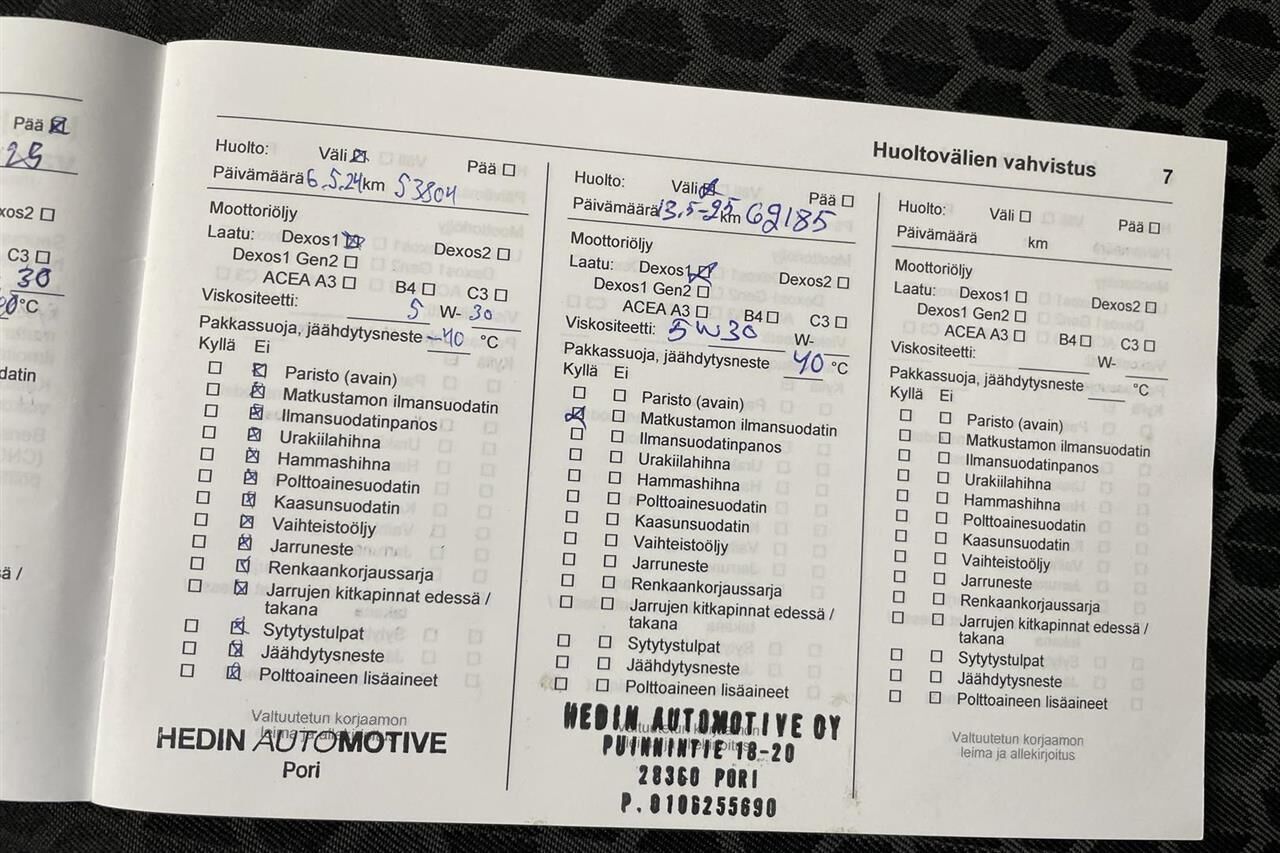 Pää
25
xos2
C3
30
°C
datin
sä /
Huoltovälien vahvistus 7
Huolto: Väli Pää
Päivämäärä 6.5.24 km 53804
Moottoriöljy
Laatu: Dexos1 Dexos2
Dexos1 Gen2
ACEA A3 B4 C3
Viskositeetti: 5 W- 30
Pakkassuoja, jäähdytysneste -40 °C
Kyllä Ei
Paristo (avain)
Matkustamon ilmansuodatin
Ilmansuodatinpanos
Urakiilahihna
Hammashihna
Polttoainesuodatin
Kaasunsuodatin
Vaihteistoöljy
Jarruneste
Renkaankorjaussarja
Jarrujen kitkapinnat edessä /
takana
Sytytystulpat
Jäähdytysneste
Polttoaineen lisäaineet
Valtuutetun korjaamon
leima ja allekirjoitus
HEDIN AUTOMOTIVE
Pori
Huolto: Väli Pää
Päivämäärä 13.5-25 km 69185
Moottoriöljy
Laatu: Dexos1 Dexos2
Dexos1 Gen2
ACEA A3 B4 C3
Viskositeetti: 5W30 W-
Pakkassuoja, jäähdytysneste 40 °C
Kyllä Ei
Paristo (avain)
Matkustamon ilmansuodatin
Ilmansuodatinpanos
Urakiilahihna
Hammashihna
Polttoainesuodatin
Kaasunsuodatin
Vaihteistoöljy
Jarruneste
Renkaankorjaussarja
Jarrujen kitkapinnat edessä /
takana
Sytytystulpat
Jäähdytysneste
Polttoaineen lisäaineet
Valtuutetun korjaamon
leima ja allekirjoitus
HEDIN AUTOMOTIVE OY
PUINNINTIE 18-20
28360 PORI
P. 0106255690
Huolto: Väli Pää
Päivämäärä km
Moottoriöljy
Laatu: Dexos1 Dexos2
Dexos1 Gen2
ACEA A3 B4 C3
Viskositeetti: W-
Pakkassuoja, jäähdytysneste °C
Kyllä Ei
Paristo (avain)
Matkustamon ilmansuodatin
Ilmansuodatinpanos
Urakiilahihna
Hammashihna
Polttoainesuodatin
Kaasunsuodatin
Vaihteistoöljy
Jarruneste
Renkaankorjaussarja
Jarrujen kitkapinnat edessä /
takana
Sytytystulpat
Jäähdytysneste
Polttoaineen lisäaineet
Valtuutetun korjaamon
leima ja allekirjoitus